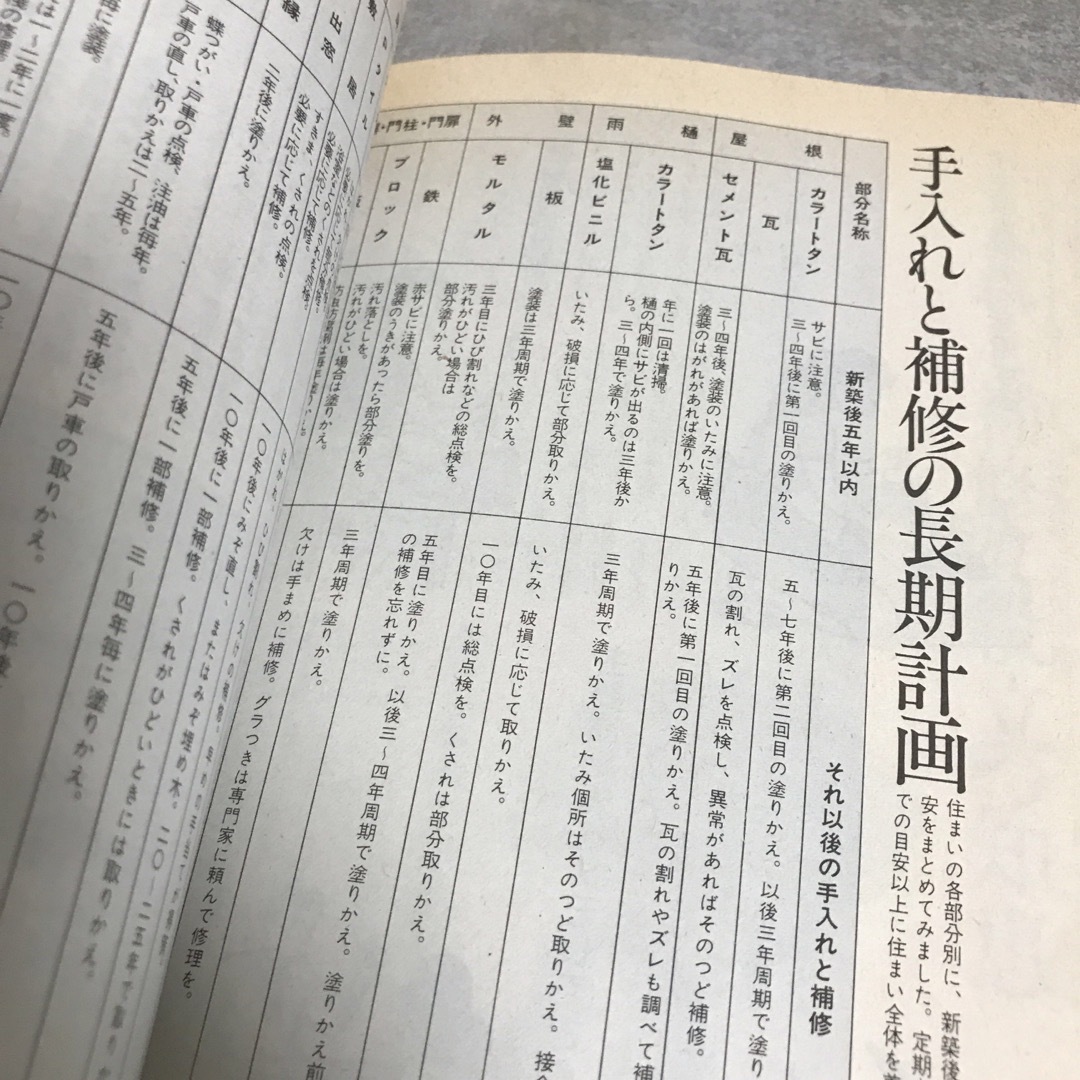 手入れと補修の長期計画
住まいの各部分別に、新築後
安をまとめてみました。定期
での目安以上に住まい全体を
部分名称
新築後五年以内
それ以後の手入れと補修
屋根
カラートタン
サビに注意。
三〜四年後に第一回目の塗りかえ。
五〜七年後に第二回目の塗りかえ。以後三年周期で塗り
瓦
瓦の割れ、ズレを点検し、異常があればそのつど補修。
セメント瓦
三〜四年後、塗装のいたみに注意。
塗装のはがれがあれば塗りかえ。
五年後に第一回目の塗りかえ。瓦の割れやズレも調べて補
りかえ。
雨樋
カラートタン
年に一回は清掃。
樋の内側にサビが出るのは三年後か
ら。三〜四年で塗りかえ。
三年周期で塗りかえ。いたみ個所はそのつど取りかえ。接
塩化ビニル
いたみ、破損に応じて部分取りかえ。
いたみ、破損に応じて取りかえ。
外壁
板
塗装は三年周期で塗りかえ。
一〇年目には総点検を。くされは部分取りかえ。
モルタル
三年目にひび割れなどの総点検を。
汚れがひどい場合は
部分塗りかえ。
五年目に塗りかえ。以後三〜四年周期で塗りかえ。塗りかえ前
の補修を忘れずに。
・門柱・門扉
鉄
赤サビに注意。
塗装のうきがあったら部分塗りを。
三年周期で塗りかえ。
ブロック
汚れ落としを。
汚れがひどい場合は塗りかえ。
欠けは手まめに補修。グラつきは専門家に頼んで修理を。
出窓
必要に応じて補修。
すきま、くされの点検。
必要に応じて補修。
一〇年後にみぞ直し、またはみぞ埋め木。二〇〜二五年で取りか
一〇年後に一部補修。くされがひどいときには取りかえ。
縁
二年後に塗りかえ。
五年後に一部補修。三〜四年毎に塗りかえ。
蝶つがい・戸車の点検、注油は毎年。
戸車の直し、取りかえは二〜五年。
五年後に戸車の取りかえ。一〇年後
毎に塗装。
は一〜二年に一度。
の修理。